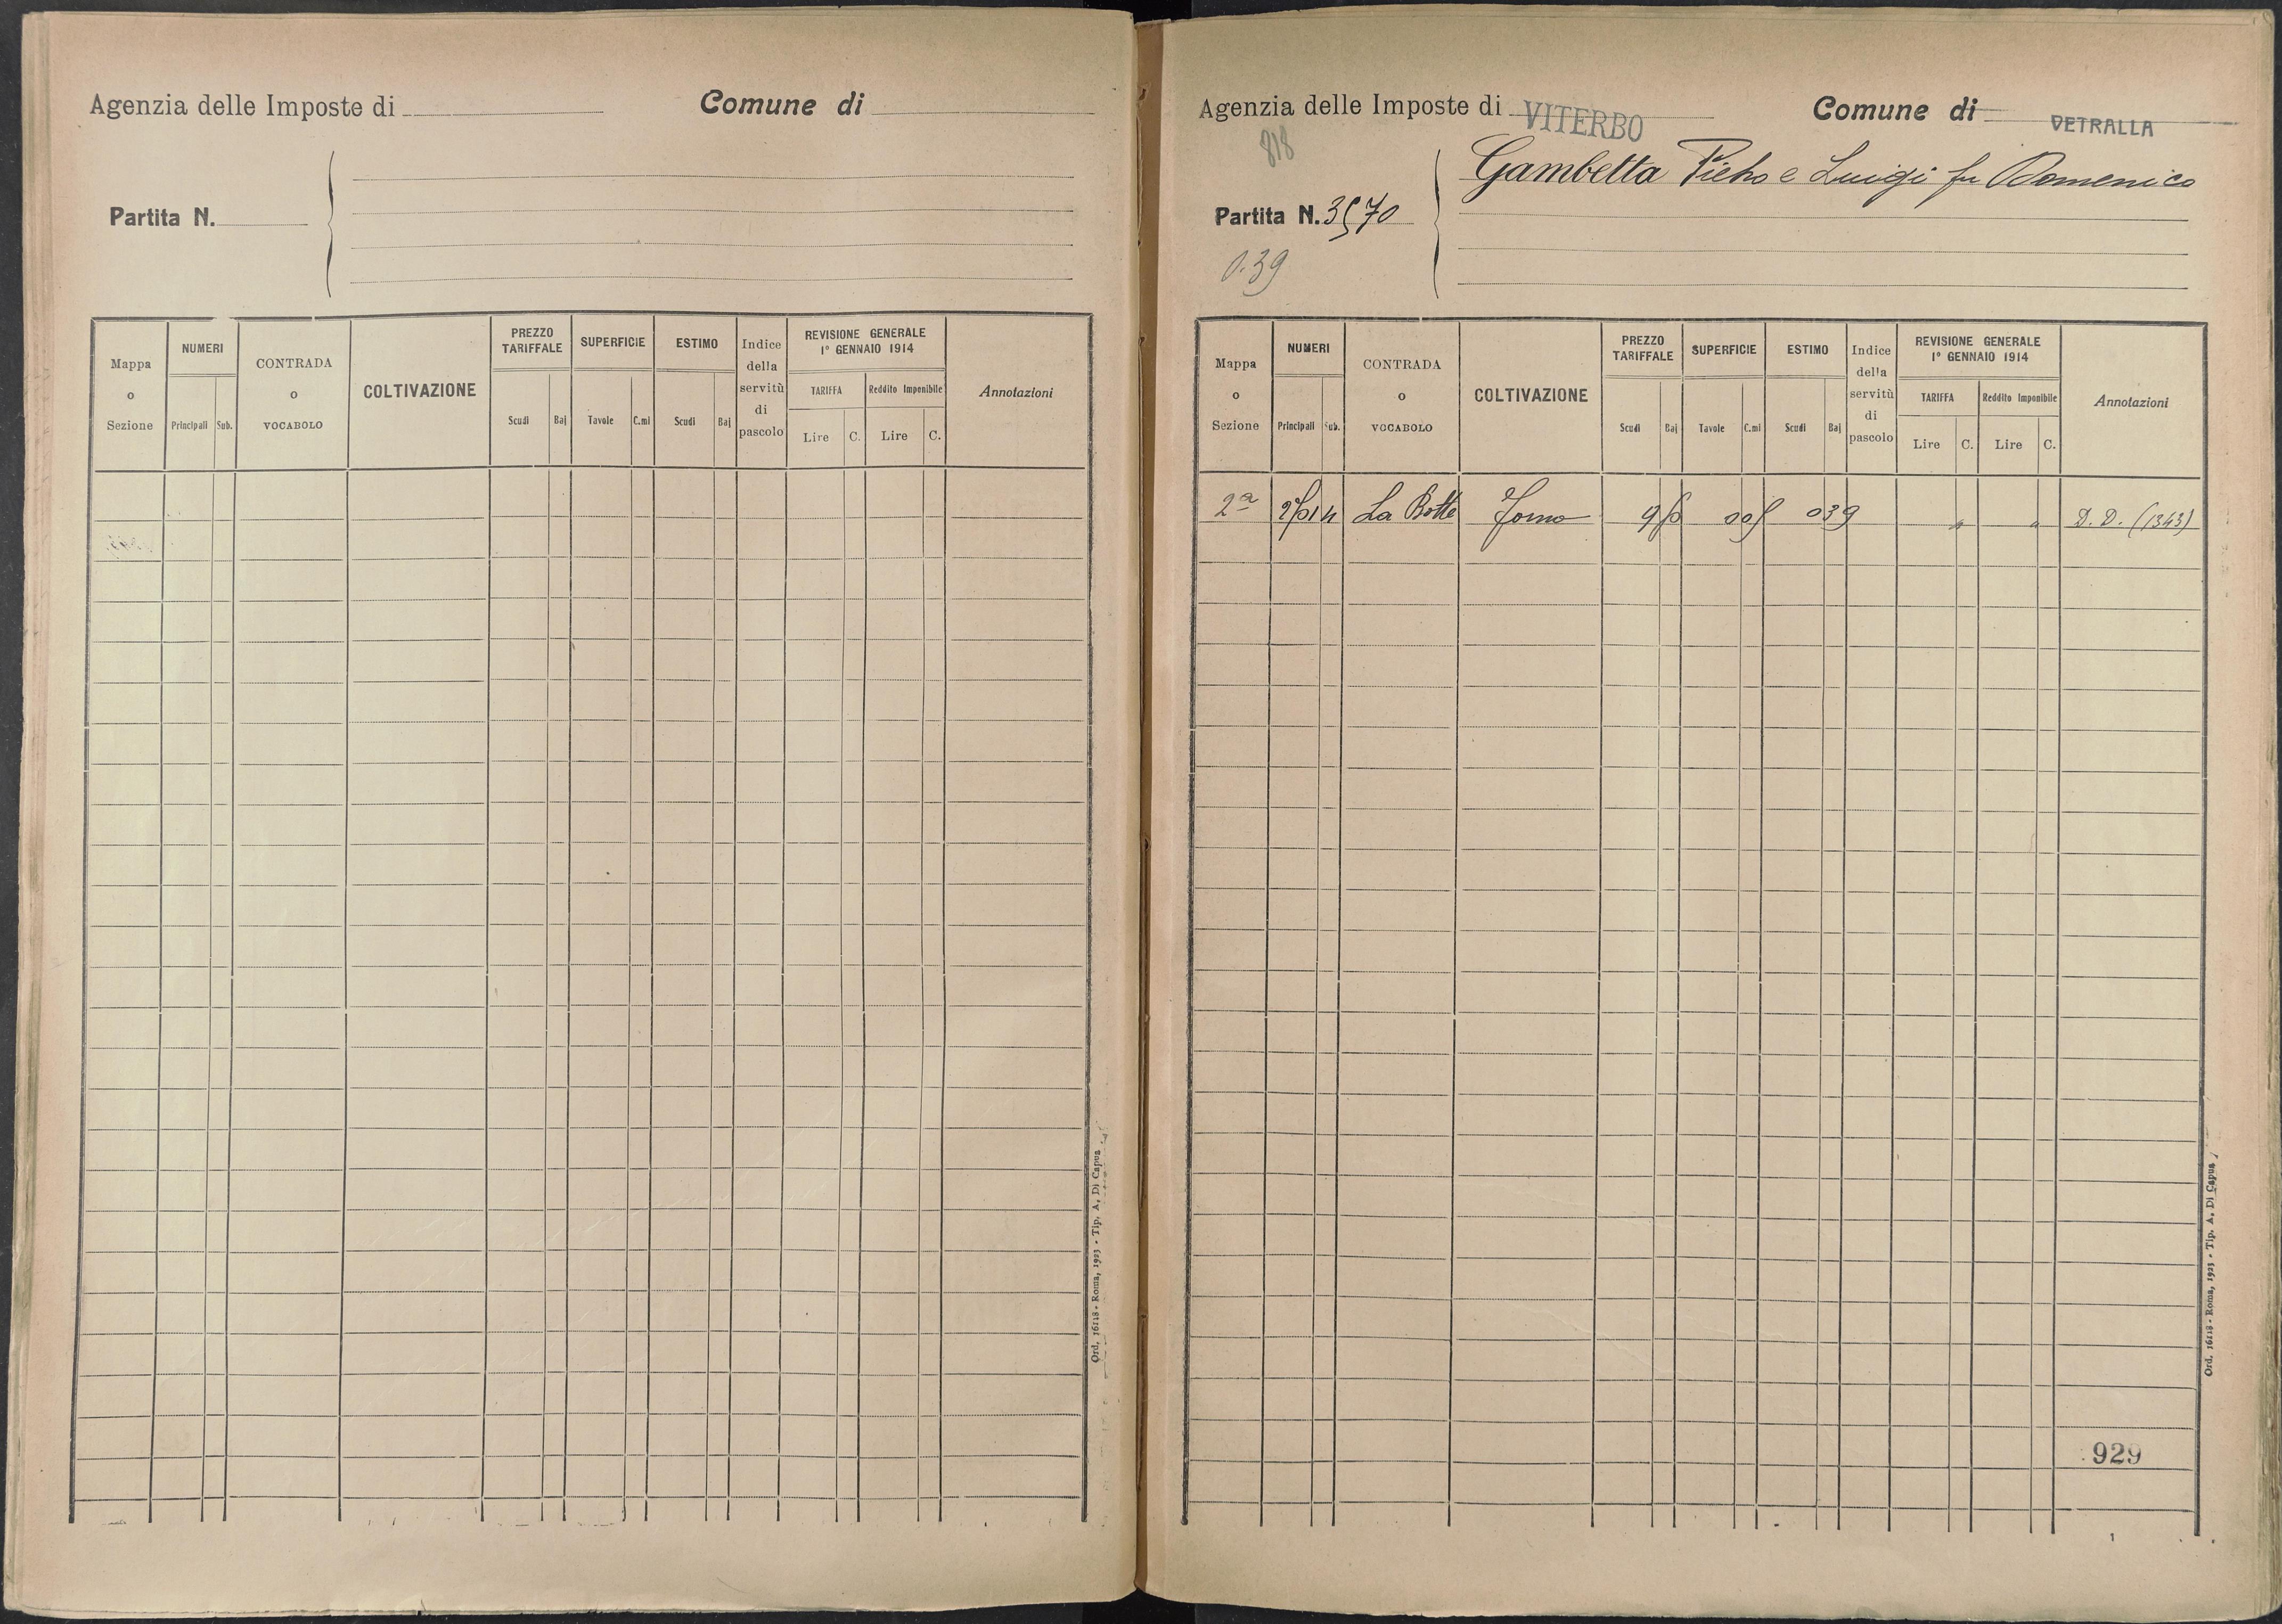 Agenzia delle Imposte di
Comune di
Partita N.
Mappa o Sezione
NUMERI
Principali
Sub.
CONTRADA o VOCABOLO
COLTIVAZIONE
PREZZO TARIFFALE
Scudi
Baj
SUPERFICIE
Tavole
C.mi
ESTIMO
Scudi
Baj
Indice della servitù di pascolo
REVISIONE GENERALE
1° GENNAIO 1914
TARIFFA
Reddito Imponibile
Lire
C.
Lire
C.
Annotazioni
Ord. 16118 - Roma, 1923 - Tip. A. Di Capua
Agenzia delle Imposte di VITERBO
Comune di VETRALLA
818
Gambetta Pietro e Luigi fu Domenico
Partita N. 3570
0.39
Mappa o Sezione
NUMERI
Principali
Sub.
CONTRADA o VOCABOLO
COLTIVAZIONE
PREZZO TARIFFALE
Scudi
Baj
SUPERFICIE
Tavole
C.mi
ESTIMO
Scudi
Baj
Indice della servitù di pascolo
REVISIONE GENERALE
1° GENNAIO 1914
TARIFFA
Reddito Imponibile
Lire
C.
Lire
C.
Annotazioni
2ª La Botte 039 " " D. D. (1343)
929
Ord. 16118 - Roma, 1923 - Tip. A. Di Capua